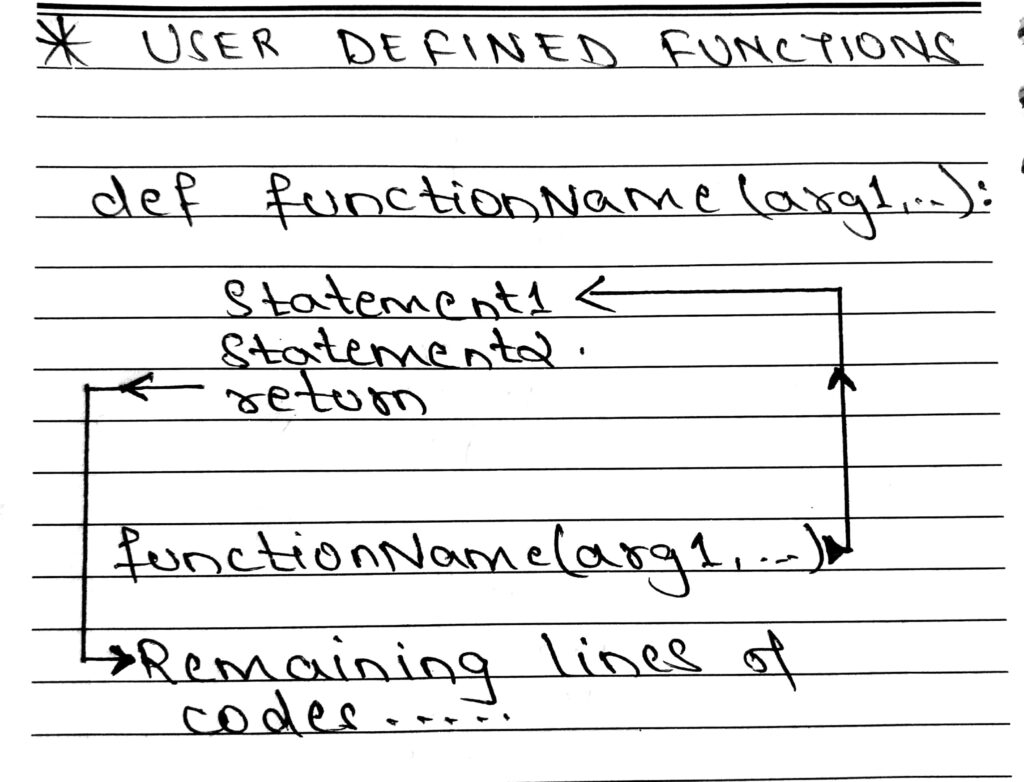 * USER DEFINED FUNCTIONS
def functionName(arg1,..):
Statement1
Statement2.
return
functionName(arg1,...)
Remaining lines of
codes......